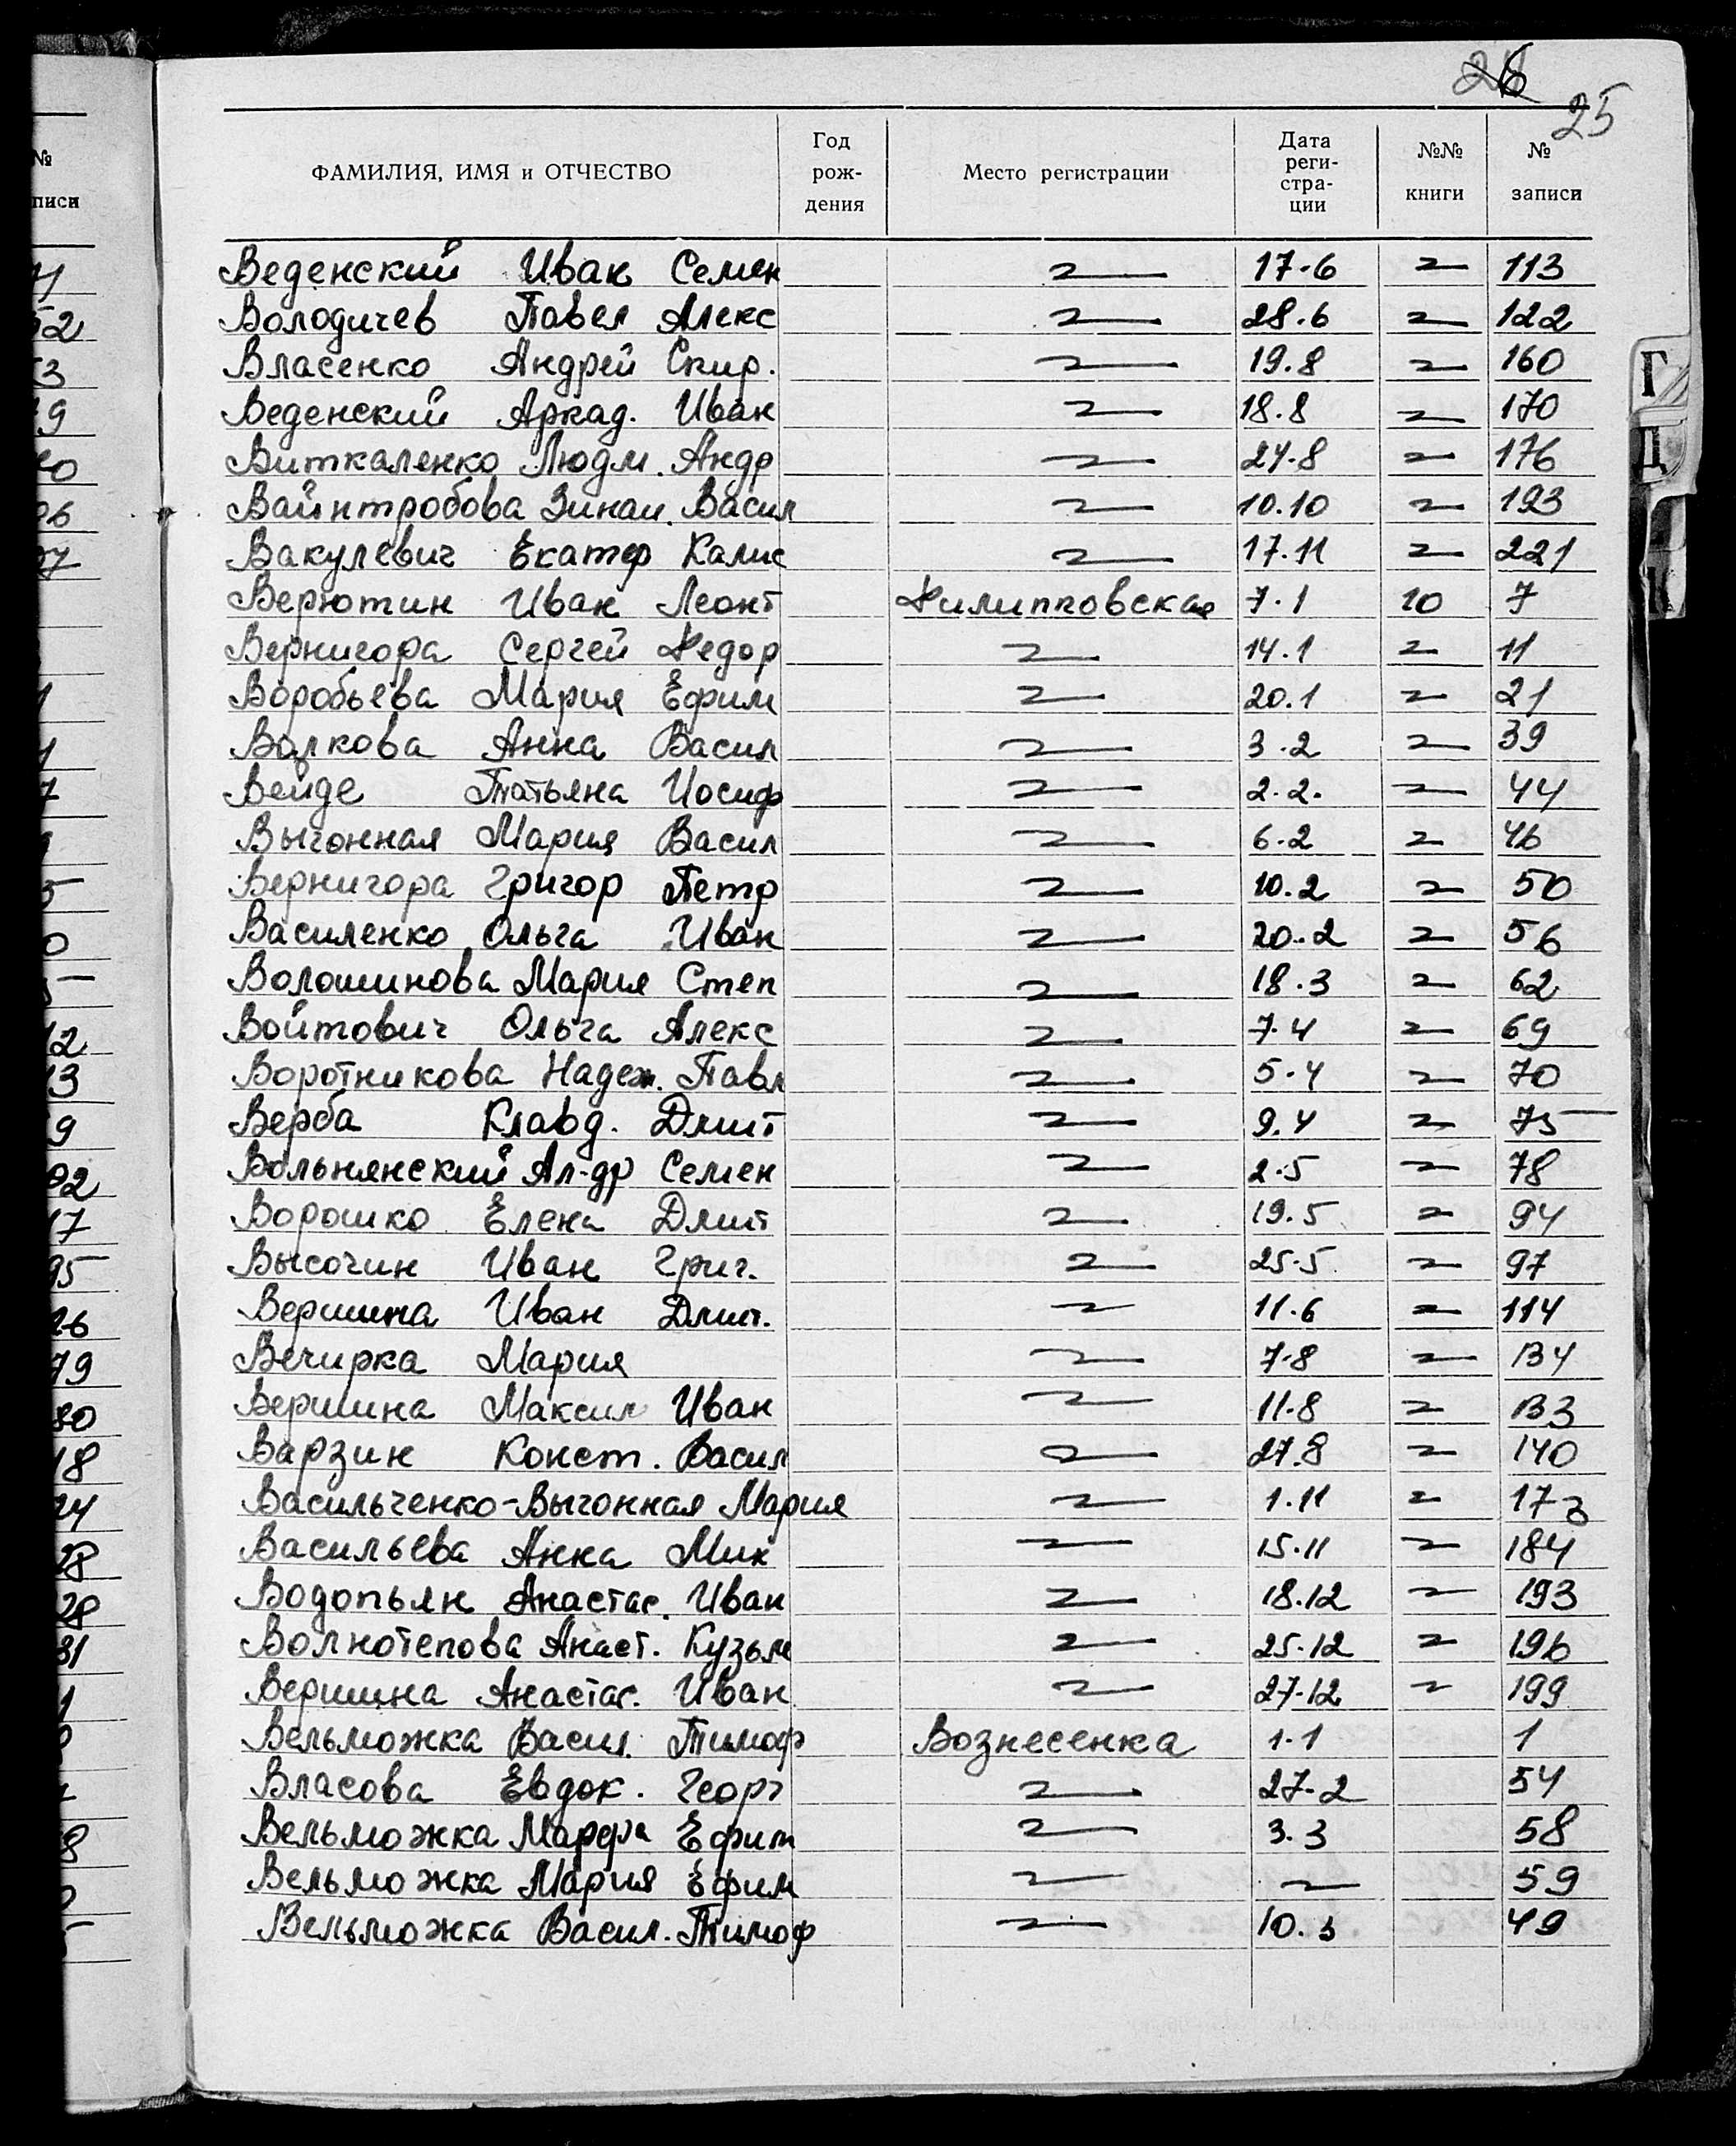 26
25
ФАМИЛИЯ, ИМЯ и ОТЧЕСТВО Год рождения Место регистрации Дата регистрации №№ книги № записи
Веденский Иван Семен — 17.6 — 113
Володичев Павел Алекс — 28.6 — 122
Власенко Андрей Спир. — 19.8 — 160
Веденский Аркад. Иван — 18.8 — 170
Виткаленко Людм. Андр — 24.8 — 176
Вайнтробова Зинаи. Васил — 10.10 — 193
Вакулевич Екатер Калис — 17.11 — 221
Верютин Иван Леонт Филипповская 7.1 10 7
Вернигора Сергей Федор — 14.1 — 11
Воробьева Мария Ефим — 20.1 — 21
Волкова Анна Васил — 3.2 — 39
Вейде Татьяна Иосиф — 2.2. — 44
Выгонная Мария Васил — 6.2 — 46
Вернигора Григор Петр — 10.2 — 50
Василенко Ольга Иван — 20.2 — 56
Волошинова Мария Степ — 18.3 — 62
Войтович Ольга Алекс — 7.4 — 69
Воротникова Надеж. Павл — 5.4 — 70
Верба Клавд. Дмит — 9.4 — 75
Вольнянский Ал-др Семен — 2.5 — 78
Ворошко Елена Дмит — 19.5 — 94
Высочин Иван Григ. — 25.5 — 97
Вершина Иван Дмит. — 11.6 — 114
Вечирка Мария — 7.8 — 134
Вершина Максим Иван — 11.8 — 133
Варзин Конст. Васил — 27.8 — 140
Васильченко-Выгонная Мария — 1.11 — 173
Васильева Анна Мих — 15.11 — 184
Водопьян Анастас. Иван — 18.12 — 193
Волнотепова Анаст. Кузьм — 25.12 — 196
Вершина Анастас. Иван — 27.12 — 199
Вельможка Васил. Тимоф Вознесенка 1.1 1
Власова Евдок. Георг — 27.2 54
Вельможка Марфа Ефим — 3.3 58
Вельможка Мария Ефим — — 59
Вельможка Васил. Тимоф — 10.3 49
Г
Д